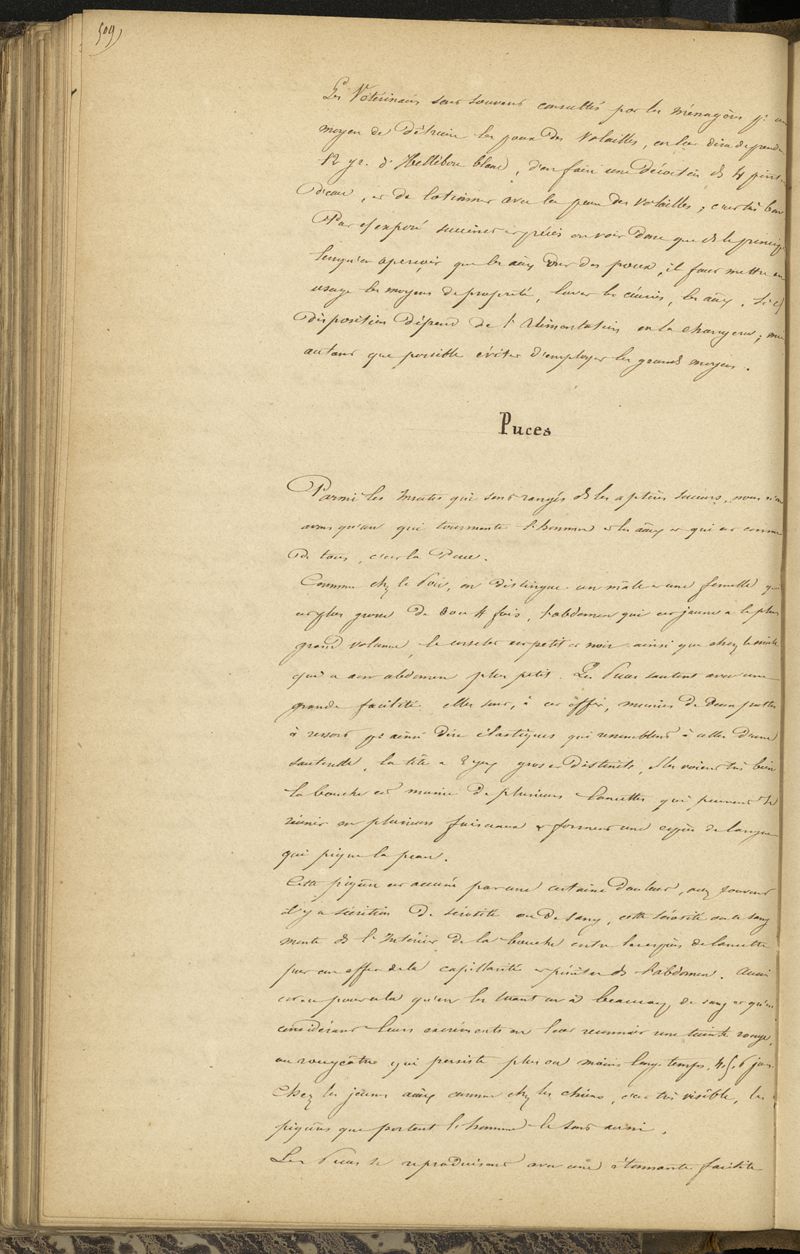 509)
Les Vétérinaires sont souvent consultés par les ménagères pr un
moyen de détruire les poux des volailles, on leur dira de prendre
12 gr. d'Hellébore blanc, d'en faire une décoction ds 4 pintes
d'eau, et de lotionner avec la peau des volailles; c'est très bon
Par cet exposé succinct et précis on voit donc que ds le principe
lorsqu'on aperçoit que les aux ont des poux, il faut mettre en
usage les moyens de propreté, laver les écuries, les aux. Si cette
disposition dépend de l'alimentation on la changera;
autant que possible éviter d'employer les grands moyens.
Puces
Parmi les insectes qui sont rangés ds les aptères suceurs, nous n'en
avons qu'un qui tourmente l'homme et les aux et qui est connu
de tous, c'est la Puce.
Comme chez le Pou, on distingue un mâle et une femelle qui
est plus grosse de 3 ou 4 fois, l'abdomen qui est jaune a le plus
grand volume, le corselet est petit et noir ainsi que chez le mâle
qui a son abdomen plus petit. Les Puces sautent avec une
grande facilité elles sont, à cet effet, munies de deux pattes
à ressort pr ainsi dire élastiques qui ressemblent à celles d'une
sauterelle, la tête a 2 yeux gros et distincts, elles voient très bien
la bouche est munie de plusieurs lancettes qui peuvent se
réunir en plusieurs faisceaux et forment une espèce de langue
qui pique la peau.
Cette piqûre est accusée par une certaine douleur, assez souvent
il y a sécrétion de sérosité ou de sang, cette sérosité ou le sang
monte ds l'intérieur de la bouche entre les espèces de lancette
par un effet de la capillarité et pénètre ds l'abdomen. Aussi
est-ce pour cela qu'en les tuant on a beaucoup de sang et qu'en
considérant leurs excréments on leur reconnait une teinte rouge,
ou rougeâtre qui persiste plus ou moins long-temps, 4, 5, 6 jours
Chez les jeunes aux comme chez les chiens, c'est très visible, les
piqûres que portent l'homme le sont aussi.
Les Puces se reproduisent avec une étonnante facilité